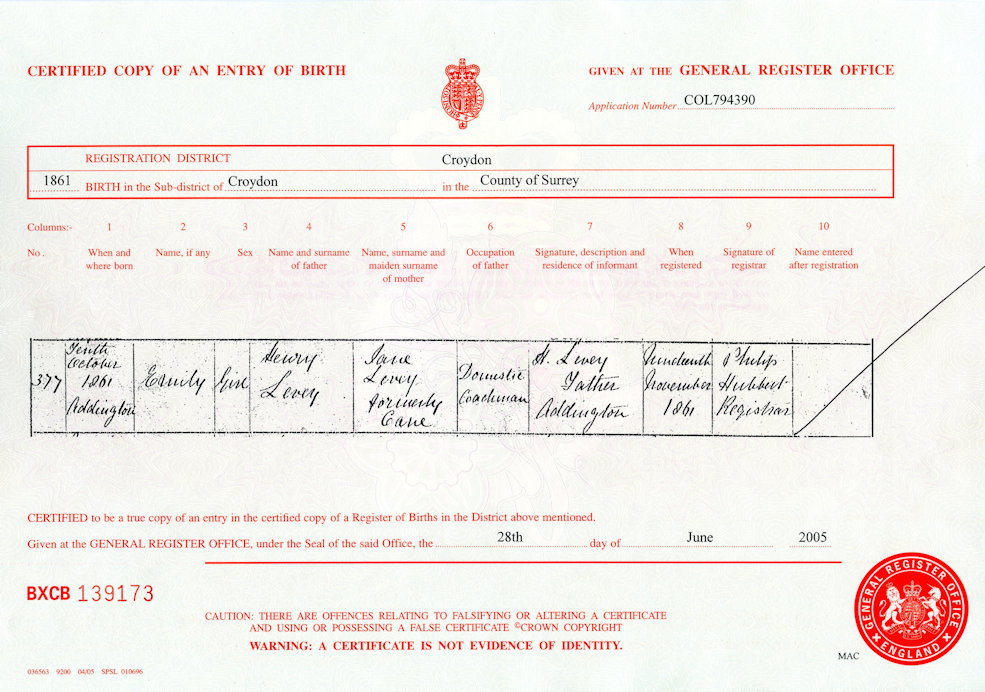 CERTIFIED COPY OF AN ENTRY OF BIRTH
GIVEN AT THE GENERAL REGISTER OFFICE
Application Number COL794390
REGISTRATION DISTRICT Croydon
1861 BIRTH in the Sub-district of Croydon in the County of Surrey
Columns:- 1 2 3 4 5 6 7 8 9 10
No. When and where born
Name, if any
Sex
Name and surname of father
Name, surname and maiden surname of mother
Occupation of father
Signature, description and residence of informant
When registered
Signature of registrar
Name entered after registration
377
Tenth
October
1861
Addington
Emily
Girl
Henry
Levey
Jane
Levey
formerly
Cane
Domestic
Coachman
H. Levey
Father
Addington
November
1861
Philip
Hubbert
Registrar
CERTIFIED to be a true copy of an entry in the certified copy of a Register of Births in the District above mentioned.
Given at the GENERAL REGISTER OFFICE, under the Seal of the said Office, the 28th day of June 2005
BXCB 139173
CAUTION: THERE ARE OFFENCES RELATING TO FALSIFYING OR ALTERING A CERTIFICATE
AND USING OR POSSESSING A FALSE CERTIFICATE ©CROWN COPYRIGHT
WARNING: A CERTIFICATE IS NOT EVIDENCE OF IDENTITY.
GENERAL REGISTER OFFICE
ENGLAND
MAC
036563 9200 04/05 SPSL 010696